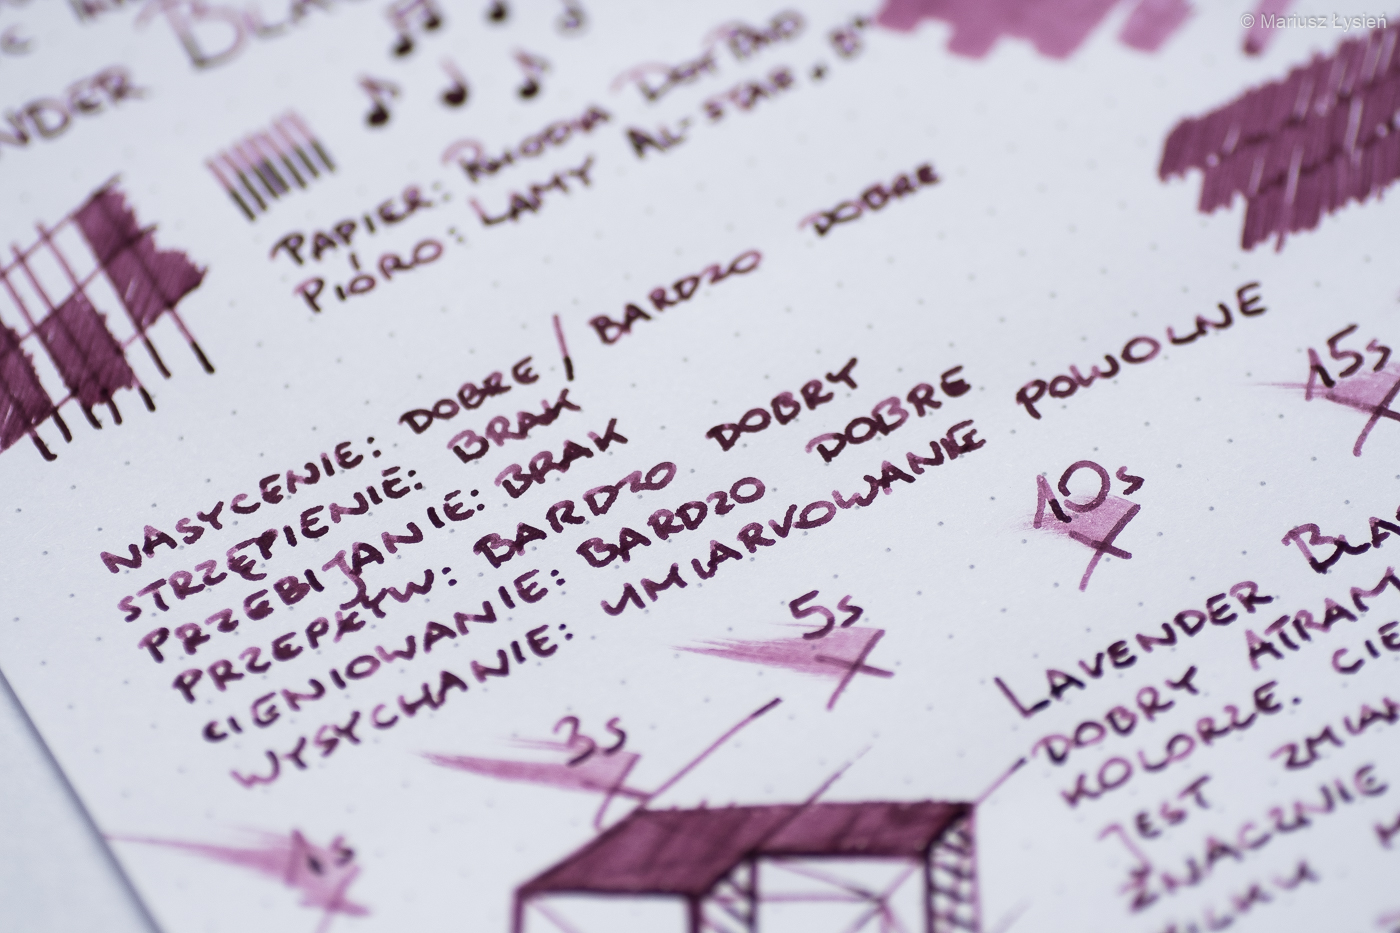 © Mariusz Łysień
NDER
PAPIER: RHODIA DOT PAD
PIÓRO: LAMY AL-STAR, B
NASYCENIE: DOBRE / BARDZO DOBRE
STRZĘPIENIE: BRAK
PRZEBIJANIE: BRAK
PRZEPŁYW: BARDZO DOBRY
CIENIOWANIE: BARDZO DOBRE
WYSYCHANIE: UMIARKOWANIE POWOLNE
1s
3s
5s
10s
15s
LAVENDER BLA
DOBRY ATRAM
KOLORZE. CIE
JEST ZMIAN
ZNACZNIE